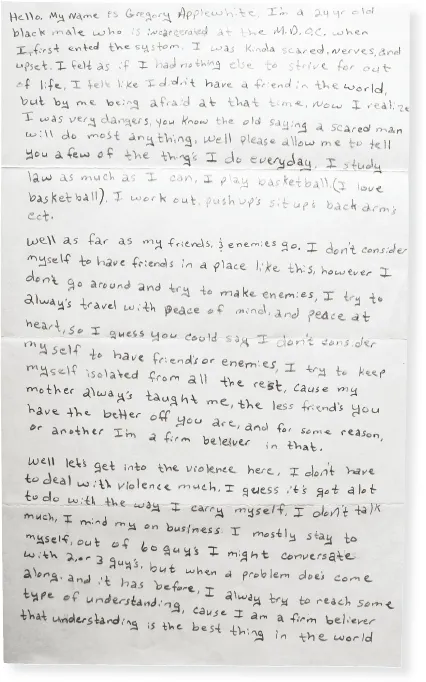 Hello. My Name is Gregory Applewhite. I'm a 24 yr old
black male who is incarcerated at the M.D.O.C. when
I first ented the system. I was kinda scared, nerves, and
upset. I felt as if I had nothing else to strive for out
of life, I felt like I didn't have a friend in the world,
but by me being afraid at that time, Now I realize
I was very dangers, you know the old saying a scared man
will do most anything, well please allow me to tell
you a few of the thing's I do everyday. I study
law as much as I can, I play basketball, (I love
basketball), I work out, pushup's situp's back arm's
ect.
well as far as my friends, & enemies go. I don't consider
myself to have friends in a place like this, however I
don't go around and try to make enemies, I try to
alway's travel with peace of mind, and peace at
heart, so I guess you could say I don't consider
myself to have friends or enemies, I try to keep
myself isolated from all the rest, cause my
mother alway's taught me, the less friend's you
have the better off you are, and for some reason,
or another Im a firm beleiver in that.
well let's get into the violence here, I don't have
to deal with violence much, I guess it's got alot
to do with the way I carry myself, I don't talk
much, I mind my on business I mostly stay to
myself, out of 60 guy's I might conversate
with 2, or 3 guy's, but when a problem doe's come
along, and it has before, I alway try to reach some
type of understanding, cause I am a firm believer
that understanding is the best thing in the world